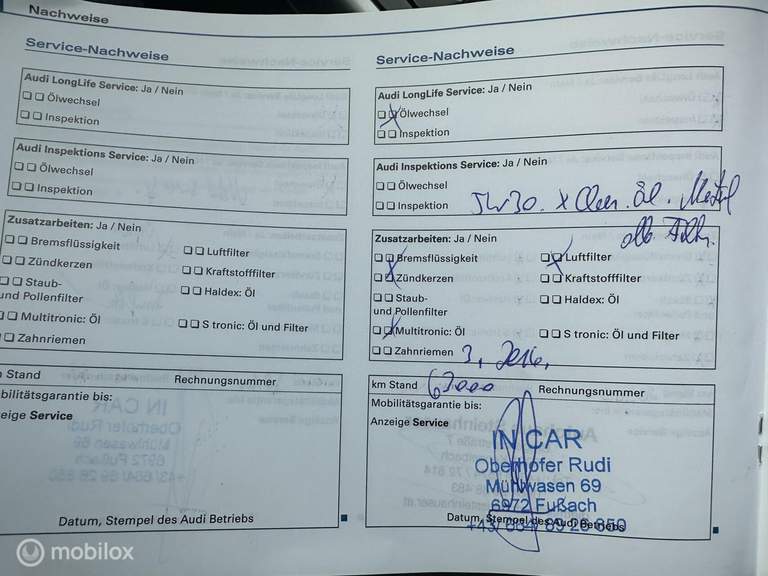 Nachweise
Service-Nachweise
Audi LongLife Service: Ja / Nein
Ölwechsel
Inspektion
Audi Inspektions Service: Ja / Nein
Ölwechsel
Inspektion
Zusatzarbeiten: Ja / Nein
Bremsflüssigkeit
Luftfilter
Zündkerzen
Kraftstofffilter
Staub-
und Pollenfilter
Haldex: Öl
Multitronic: Öl
S tronic: Öl und Filter
Zahnriemen
km Stand
Rechnungsnummer
Mobilitätsgarantie bis:
Anzeige Service
Datum, Stempel des Audi Betriebs
Service-Nachweise
Audi LongLife Service: Ja / Nein
Ölwechsel
Inspektion
Audi Inspektions Service: Ja / Nein
Ölwechsel
Inspektion
5W30. x Clean. Öl.
Zusatzarbeiten: Ja / Nein
Bremsflüssigkeit
Luftfilter
Zündkerzen
Kraftstofffilter
Staub-
und Pollenfilter
Haldex: Öl
Multitronic: Öl
S tronic: Öl und Filter
Zahnriemen
km Stand
Rechnungsnummer
Mobilitätsgarantie bis:
Anzeige Service
IN CAR
Oberhofer Rudi
Mühlwasen 69
6972 Fußach
Datum, Stempel des Audi Betriebs
mobilox